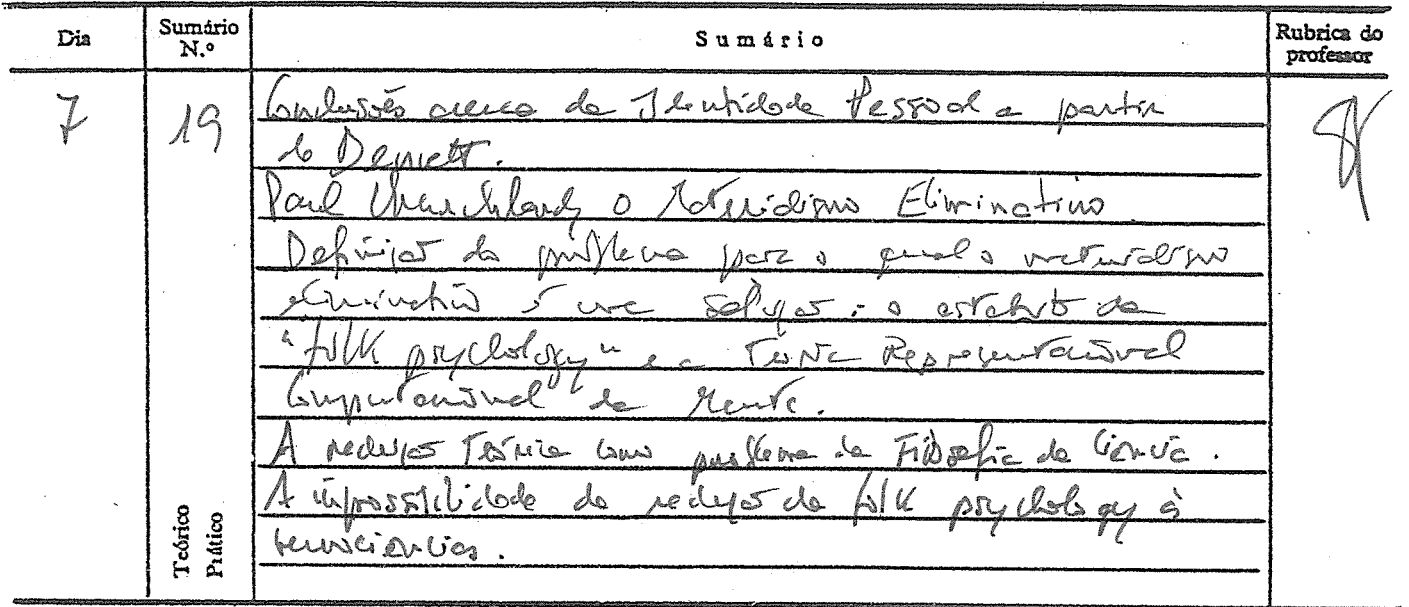 Dia
Sumário N.º
Sumário
Rubrica do professor
7
19
Conclusões acerca da Identidade Pessoal a partir
de Dennett.
Paul Churchland, o Materialismo Eliminativo.
Definição do problema para o qual o materialismo
eliminativo é uma solução: o estatuto da
"folk psychology" e a Teoria Representacional
Computacional da Mente.
A redução Teórica como problema da Filosofia da Ciência.
A impossibilidade da redução da folk psychology às
neurociências.
Teórico
Prático